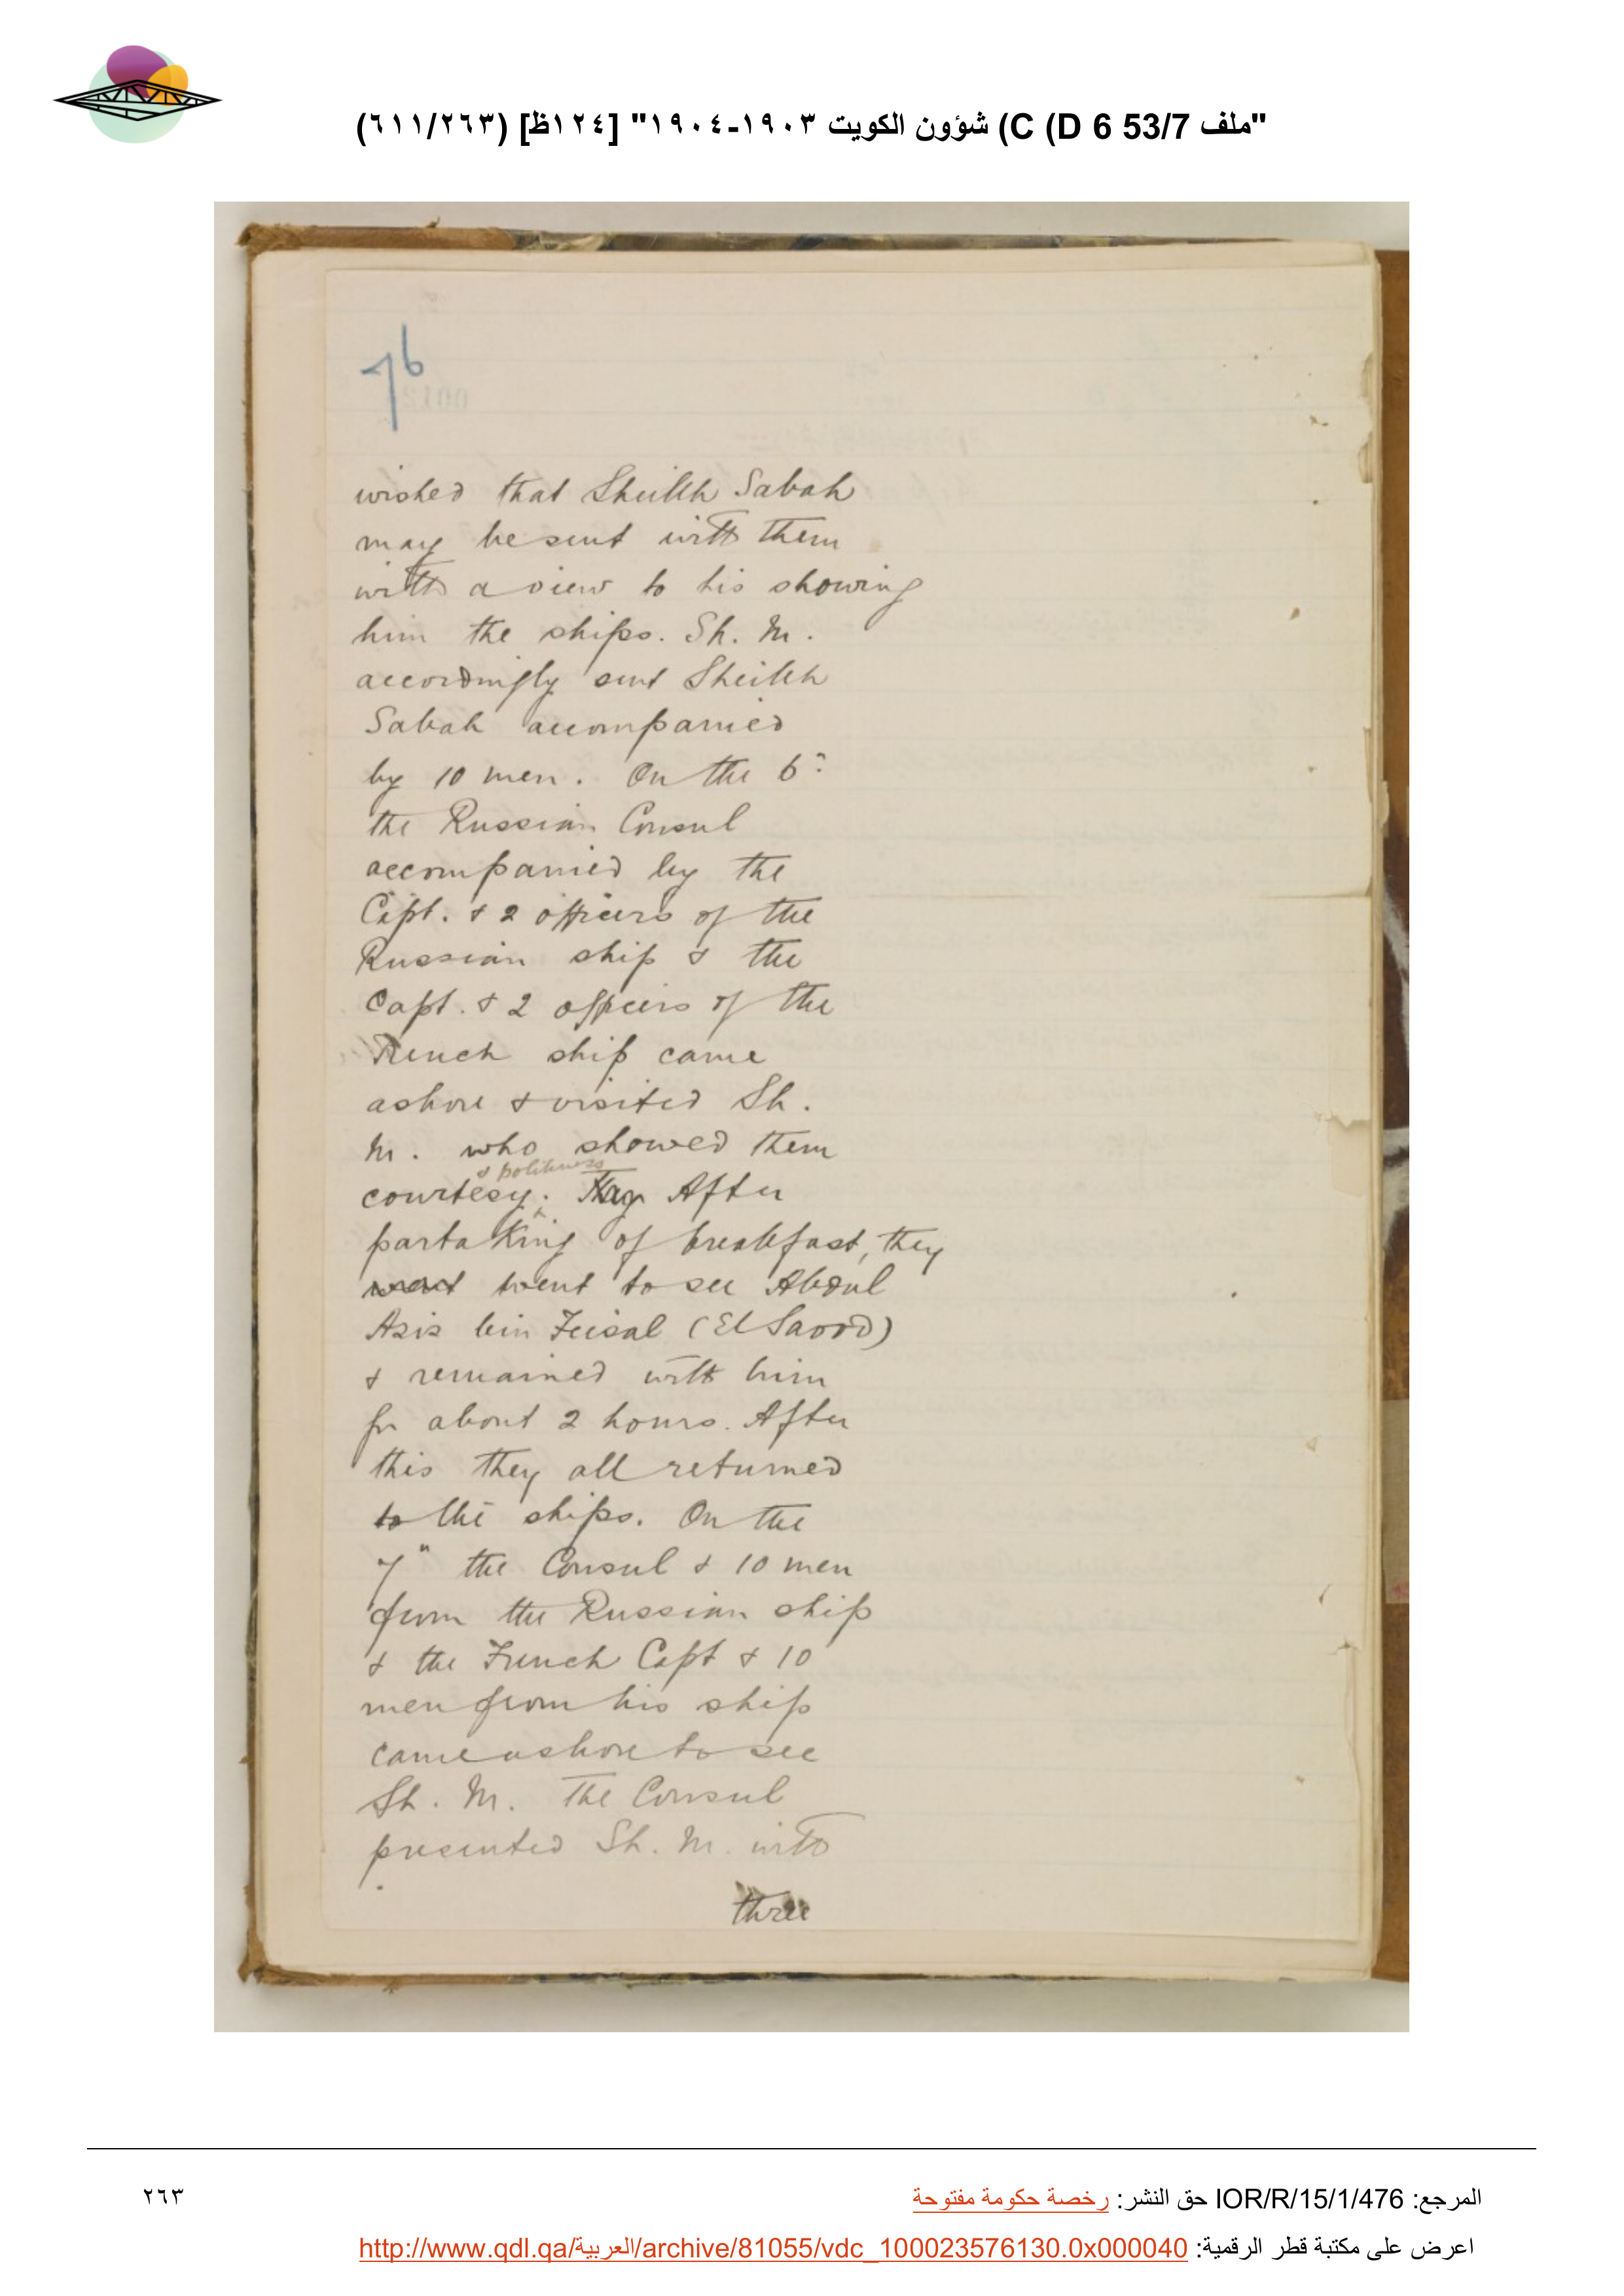 "ملف 53/7 D 6) C) شؤون الكويت ١٩٠٣-١٩٠٤" [١٢٤ظ] (٦١١/٢٦٣)
76
wished that Sheikh Sabah
may be sent with them
with a view to his showing
him the ships. Sh. M.
accordingly sent Sheikh
Sabah accompanied
by 10 men. On the 6"
the Russian Consul
accompanied by the
Capt. & 2 officers of the
Russian ship & the
Capt. & 2 officers of the
French ship came
ashore & visited Sh.
M. who showed them
& politeness
courtesy. They After
partaking of breakfast, they
went went to see Abdul
Aziz bin Feisal (El Saood)
& remained with him
for about 2 hours. After
this they all returned
to the ships. On the
7" the Consul & 10 men
from the Russian ship
& the French Capt & 10
men from his ship
came ashore to see
Sh. M. The Consul
presented Sh. M. with
three
المرجع: IOR/R/15/1/476 حق النشر: رخصة حكومة مفتوحة
٢٦٣
اعرض على مكتبة قطر الرقمية: http://www.qdl.qa/العربية/archive/81055/vdc_100023576130.0x000040